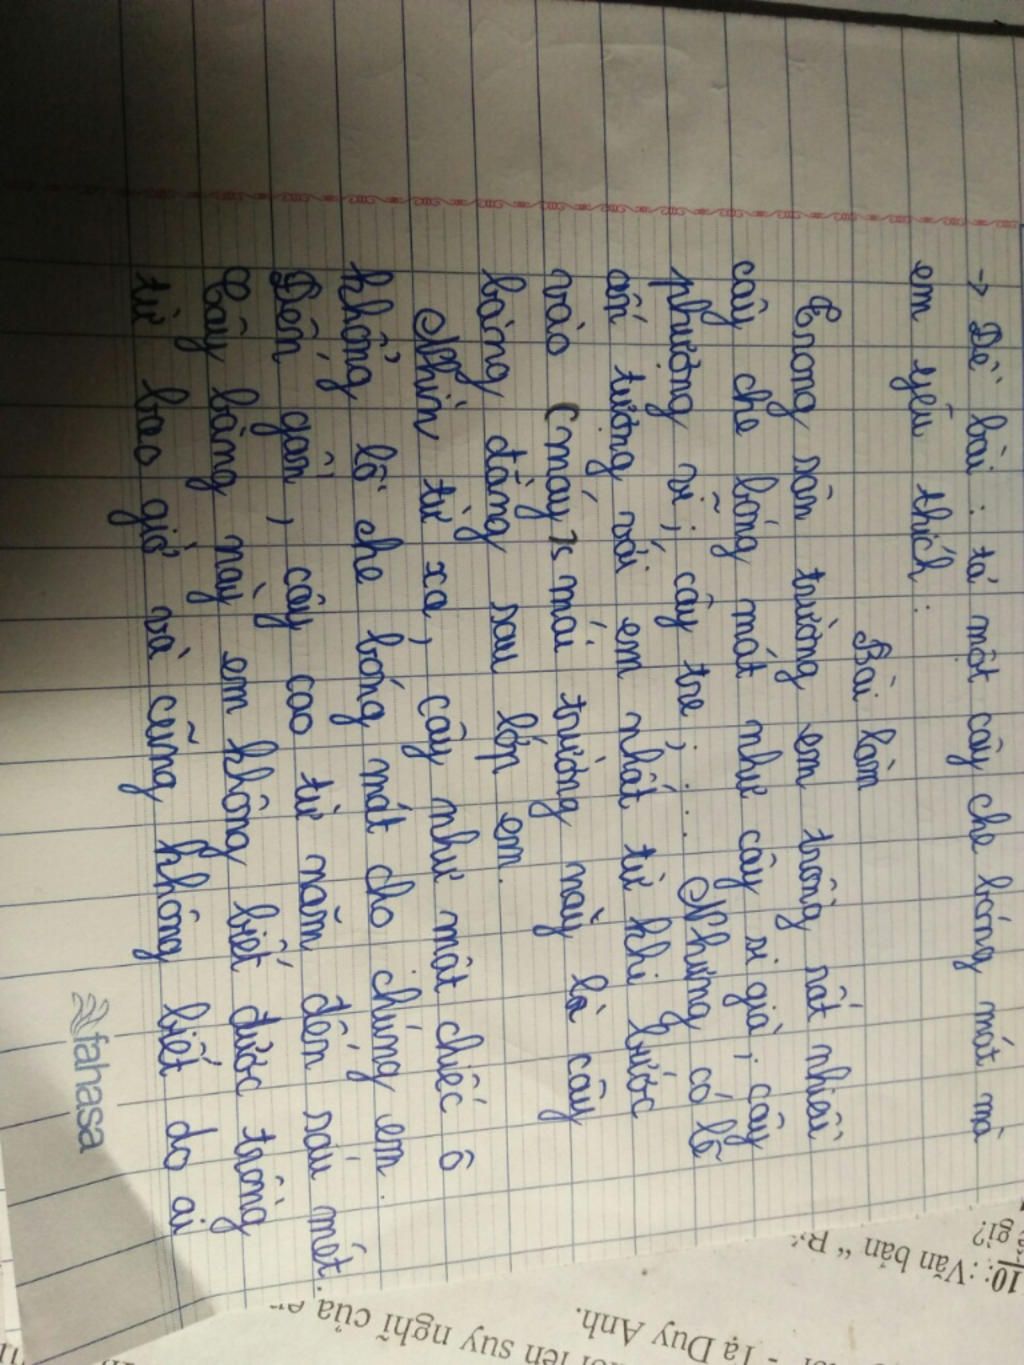 → Đề bài: tả một cây che bóng mát mà
em yêu thích:
Bài làm
Trong sân trường em trồng rất nhiều
cây che bóng mát như cây si già; cây
phượng vĩ; cây tre; ... Nhưng có lẽ
ấn tượng với em nhất từ khi bước
vào (máy) mái trường này là cây
bàng đằng sau lớp em.
Nhìn từ xa, cây như một chiếc ô
khổng lồ che bóng mát cho chúng em.
Đến gần, cây cao từ năm đến sáu mét.
Cây bàng này em không biết được trồng
từ bao giờ và cũng không biết do ai
fahasa
10: Văn bản "
ế gì?
- Tạ Duy Anh.
lên suy nghĩ của